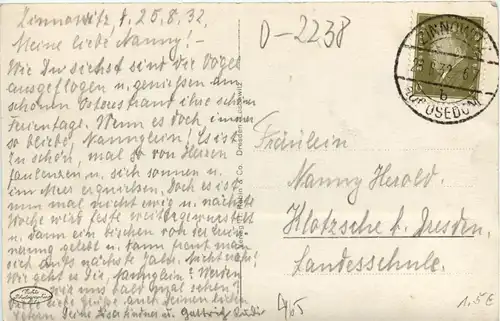 Zinnowitz, d. 25.8.32.
Meine liebe Nanny! –
Wie Du siehst sind die Vögel
ausgeflogen u. genießen am
schönen Ostseestrand ihre schönen
Ferientage. Wenn es doch immer
so bliebe, Nannylein! Es ist
zu schön, mal so von Herzen
faulenzen u. sich sonnen u.
im Meer erquicken. Doch es ist
nun mal nicht ewig u. nächste
Woche wird feste
u. dann ein bischen von der
gelebt u. dann freut man
sich aufs nächste Jahr. Nicht wahr?
Wie geht es Dir, Nannylein? Werden
wir uns bald mal sehen?
liebe Grüße auch Deinen lieben
Eltern Deine u.
D-2238
ZINNOWITZ
b
(USEDOM)
Fräulein
Nanny Herold.
Klotzsche b. Dresden.
Landesschule.
& Co. Dresden
1.5€